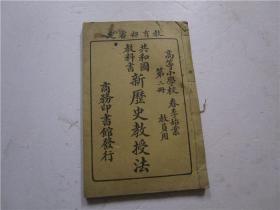 教育部審定
高等小學校 春季始業
第二冊 教員用
共和國
教科書
新歷史教授法
商務印書館發行